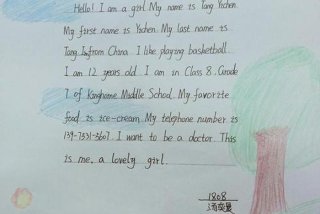 Hello! I am a girl. My name is Tang Yichen.
My first name is Yichen. My last name is
Tang. Is from China. I like playing basketball.
I am 12 years old. I am in Class 8, Grade
7 of Kanghome Middle School. My favorite
food is ice-cream. My telephone number is
139-7531-3607. I want to be a doctor. This
is me, a lovely girl.
1808
汤